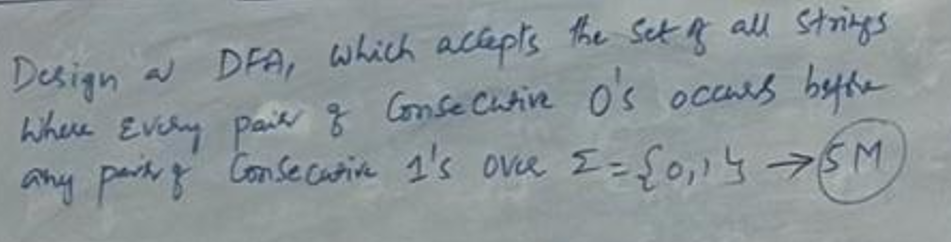 Design a DFA, which accepts the set of all strings
where Every pair of Consecutive 0's occurs before
any pair of Consecutive 1's over Σ={0,1} → 5M